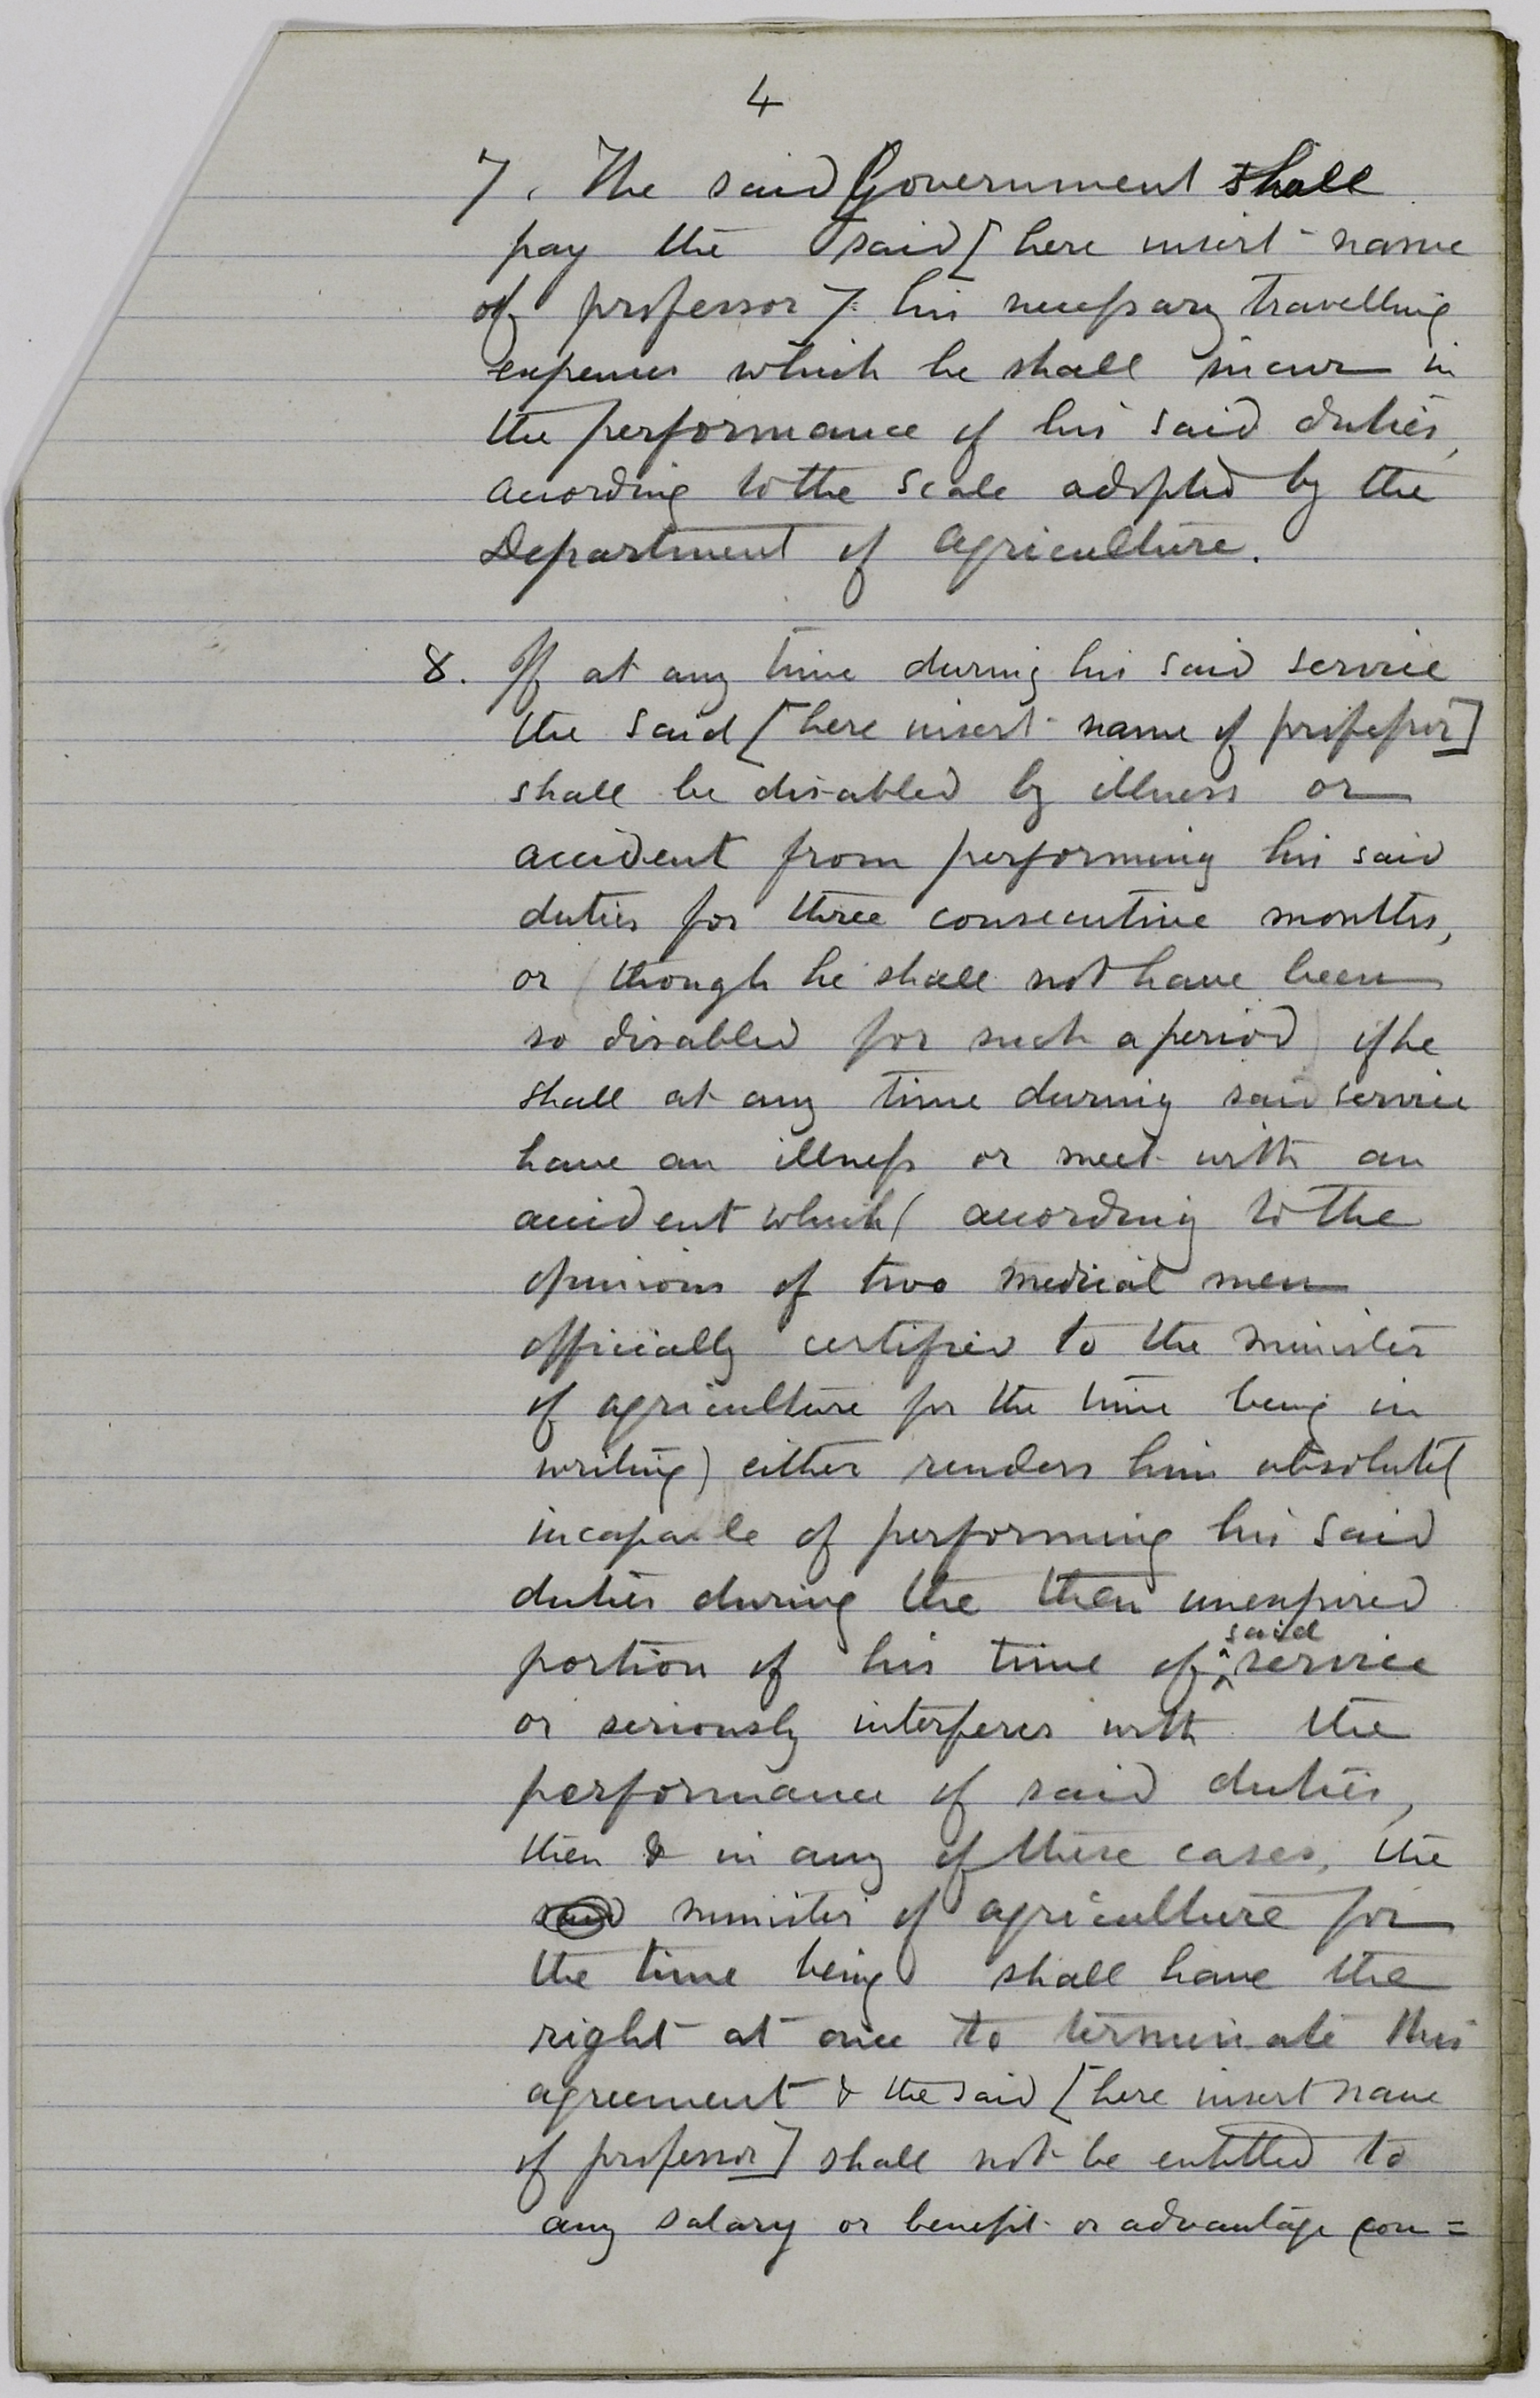 4
7. The said Government shall
pay the said [here insert name
of professor] his necessary travelling
expenses which he shall incur in
the performance of his said duties,
according to the scale adopted by the
Department of agriculture.
8. If at any time during his said service
the said [here insert name of professor]
shall be disabled by illness or
accident from performing his said
duties for three consecutive months,
or (though he shall not have been
so disabled for such a period) if he
shall at any time during said service
have an illness or meet with an
accident which (according to the
opinions of two medical men
officially certified to the minister
of agriculture for the time being in
writing) either renders him absolutely
incapable of performing his said
duties during the then unexpired
portion of his time of said service
or seriously interferes with the
performance of said duties,
then & in any of these cases, the
said minister of agriculture for
the time being shall have the
right at once to terminate this
agreement & the said [here insert name
of professor] shall not be entitled to
any salary or benefit or advantage con=